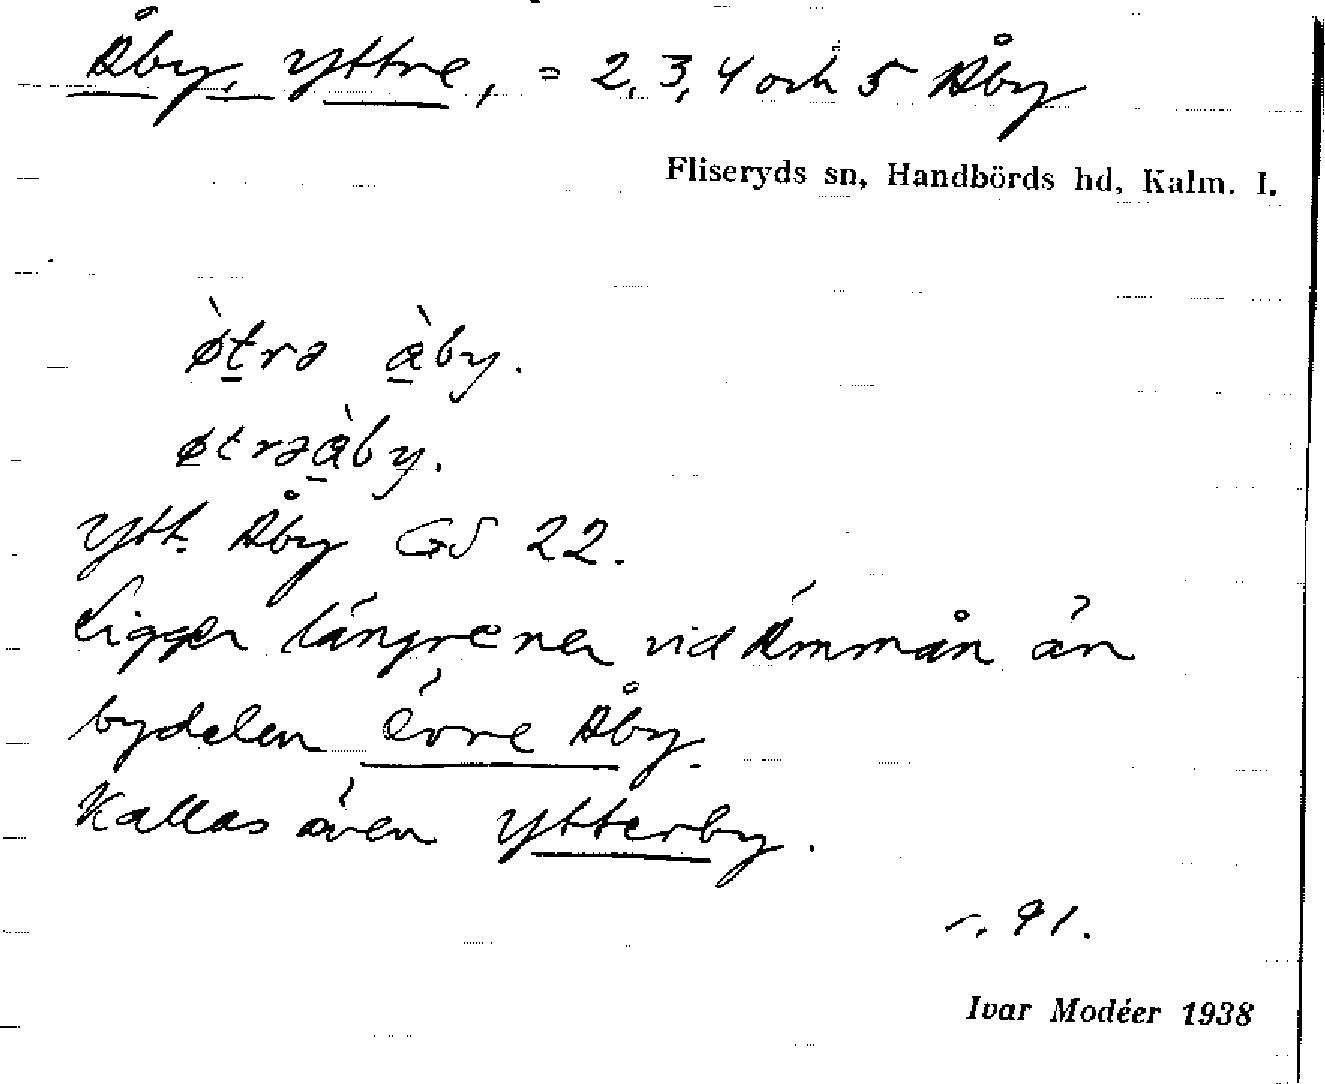 Åby, Yttre, = 2, 3, 4 och 5 Åby
Fliseryds sn, Handbörds hd, Kalm. l.
ø̀trə àby.
øtrəàby.
Ytt. Åby GS 22.
Ligger längre ner vid Ämmån än
bydelen Övre Åby.
Kallas även Ytterby.
s. 91.
Ivar Modéer 1938